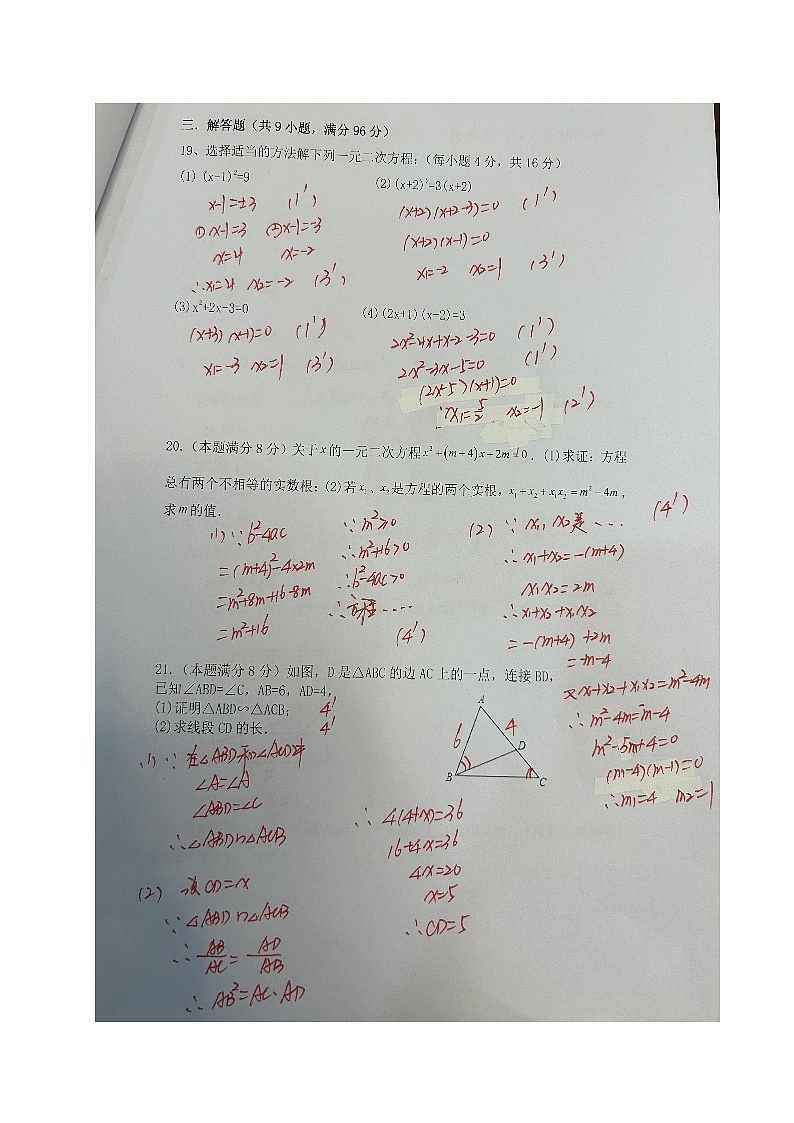 三、解答题（共9小题，满分96分）
19、选择适当的方法解下列一元二次方程：（每小题4分，共16分）
(1) (x-1)²=9
x-1=±3 (1')
①x-1=3 ②x-1=-3
x=4 x=-2
∴x₁=4 x₂=-2 (3')
(2)(x+2)²=3(x+2)
(x+2)(x+2-3)=0 (1')
(x+2)(x-1)=0
x₁=-2 x₂=1 (3')
(3)x²+2x-3=0
(x+3)(x-1)=0 (1')
x₁=-3 x₂=1 (3')
(4)(2x+1)(x-2)=3
2x²-4x+x-2-3=0 (1')
2x²-3x-5=0 (1')
(2x-5)(x+1)=0
∴x₁=5/2 x₂=-1 (2')
20.（本题满分8分）关于x的一元二次方程x²+(m+4)x+2m=0.(1)求证：方程
总有两个不相等的实数根；(2)若x₁、x₂是方程的两个实根，x₁+x₂+x₁x₂=m²-4m，
求m的值.
(1) ∵b²-4ac
=(m+4)²-4×2m
=m²+8m+16-8m
=m²+16
∵m²≥0
∴m²+16>0
∴b²-4ac>0
∴方程....
(4')
(2) ∵x₁, x₂是... (4')
∴x₁+x₂=-(m+4)
x₁x₂=2m
∴x₁+x₂+x₁x₂
=-(m+4)+2m
=m-4
又x₁+x₂+x₁x₂=m²-4m
∴m²-4m=m-4
m²-5m+4=0
(m-4)(m-1)=0
∴m₁=4 m₂=1
21.（本题满分8分）如图，D是△ABC的边AC上的一点，连接BD，
已知∠ABD=∠C，AB=6，AD=4，
(1)证明△ABD∽△ACB； 4'
(2)求线段CD的长. 4'
A
6
4
D
B
C
(1) ∵在△ABD和△ACD中
∠A=∠A
∠ABD=∠C
∴△ABD∽△ACB
(2) 设CD=x
∵△ABD∽△ACB
∴AB/AC=AD/AB
∴AB²=AC·AD
∴4(4+x)=36
16+4x=36
4x=20
x=5
∴CD=5